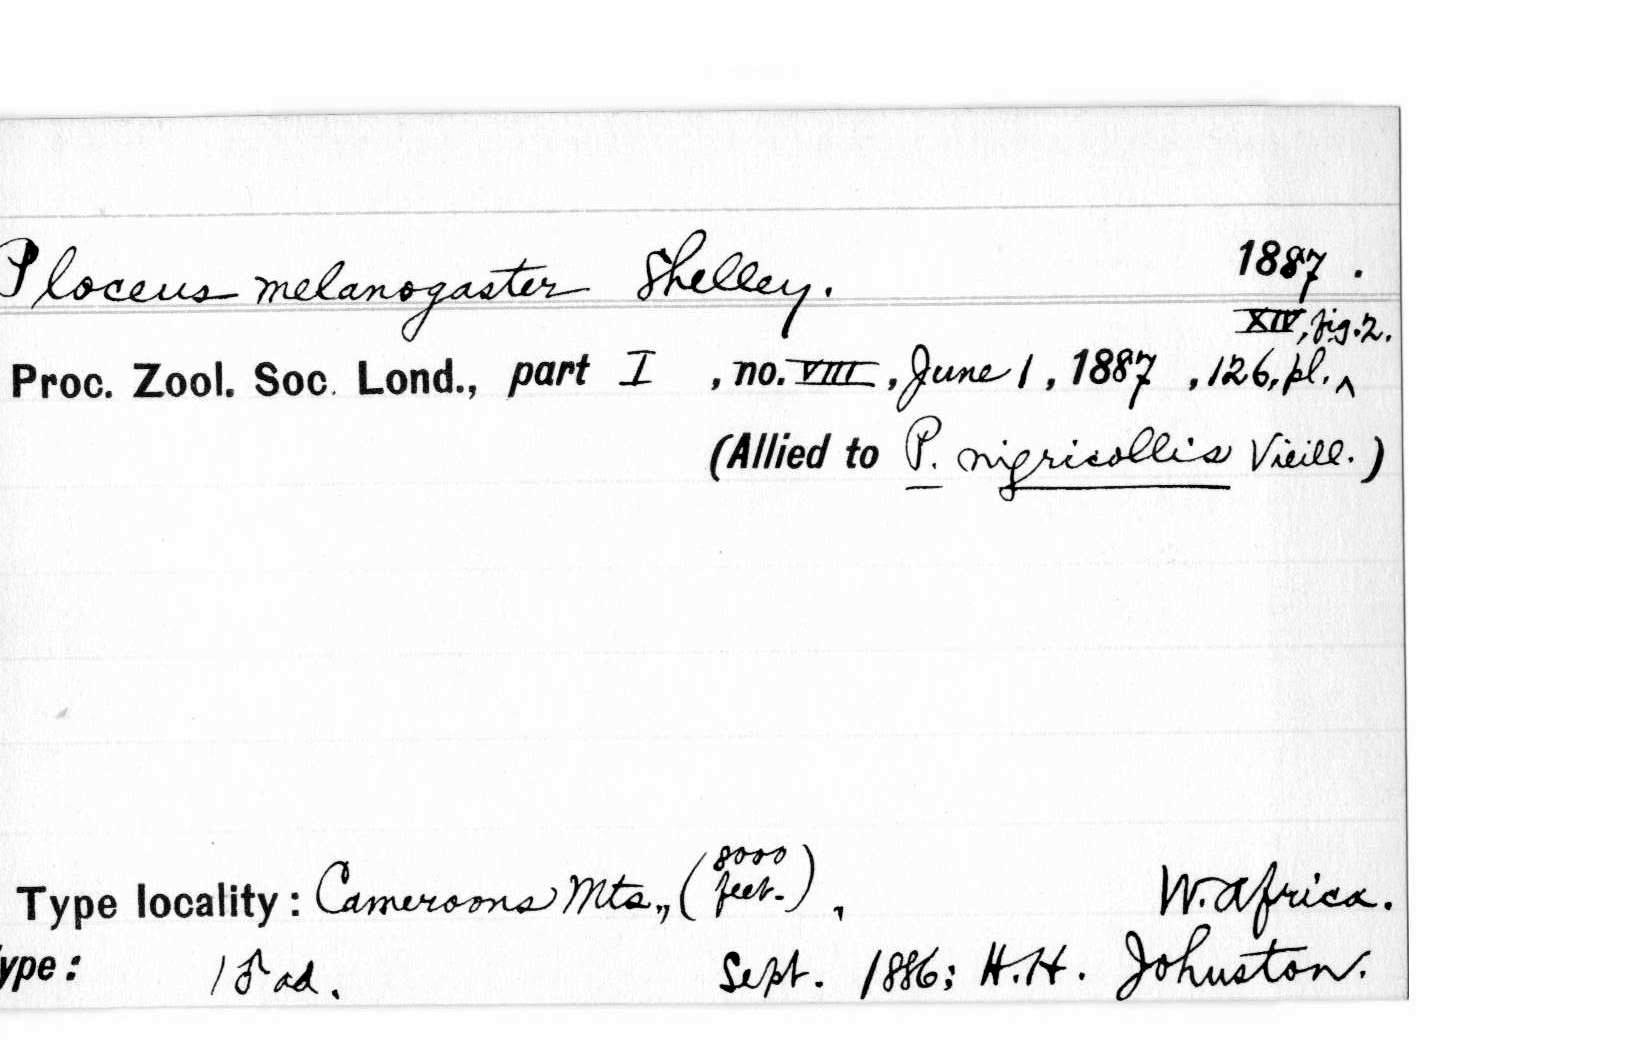 Ploceus melanogaster Shelley. 1887.
XIV, fig. 2.
Proc. Zool. Soc. Lond., part I, no. VIII, June 1, 1887, 126, pl. ^
(Allied to P. nigricollis Vieill.)
Type locality: Cameroons Mts., (8000 feet.), W. Africa.
ype: 1 ♂ ad. Sept. 1886; H. H. Johnston.